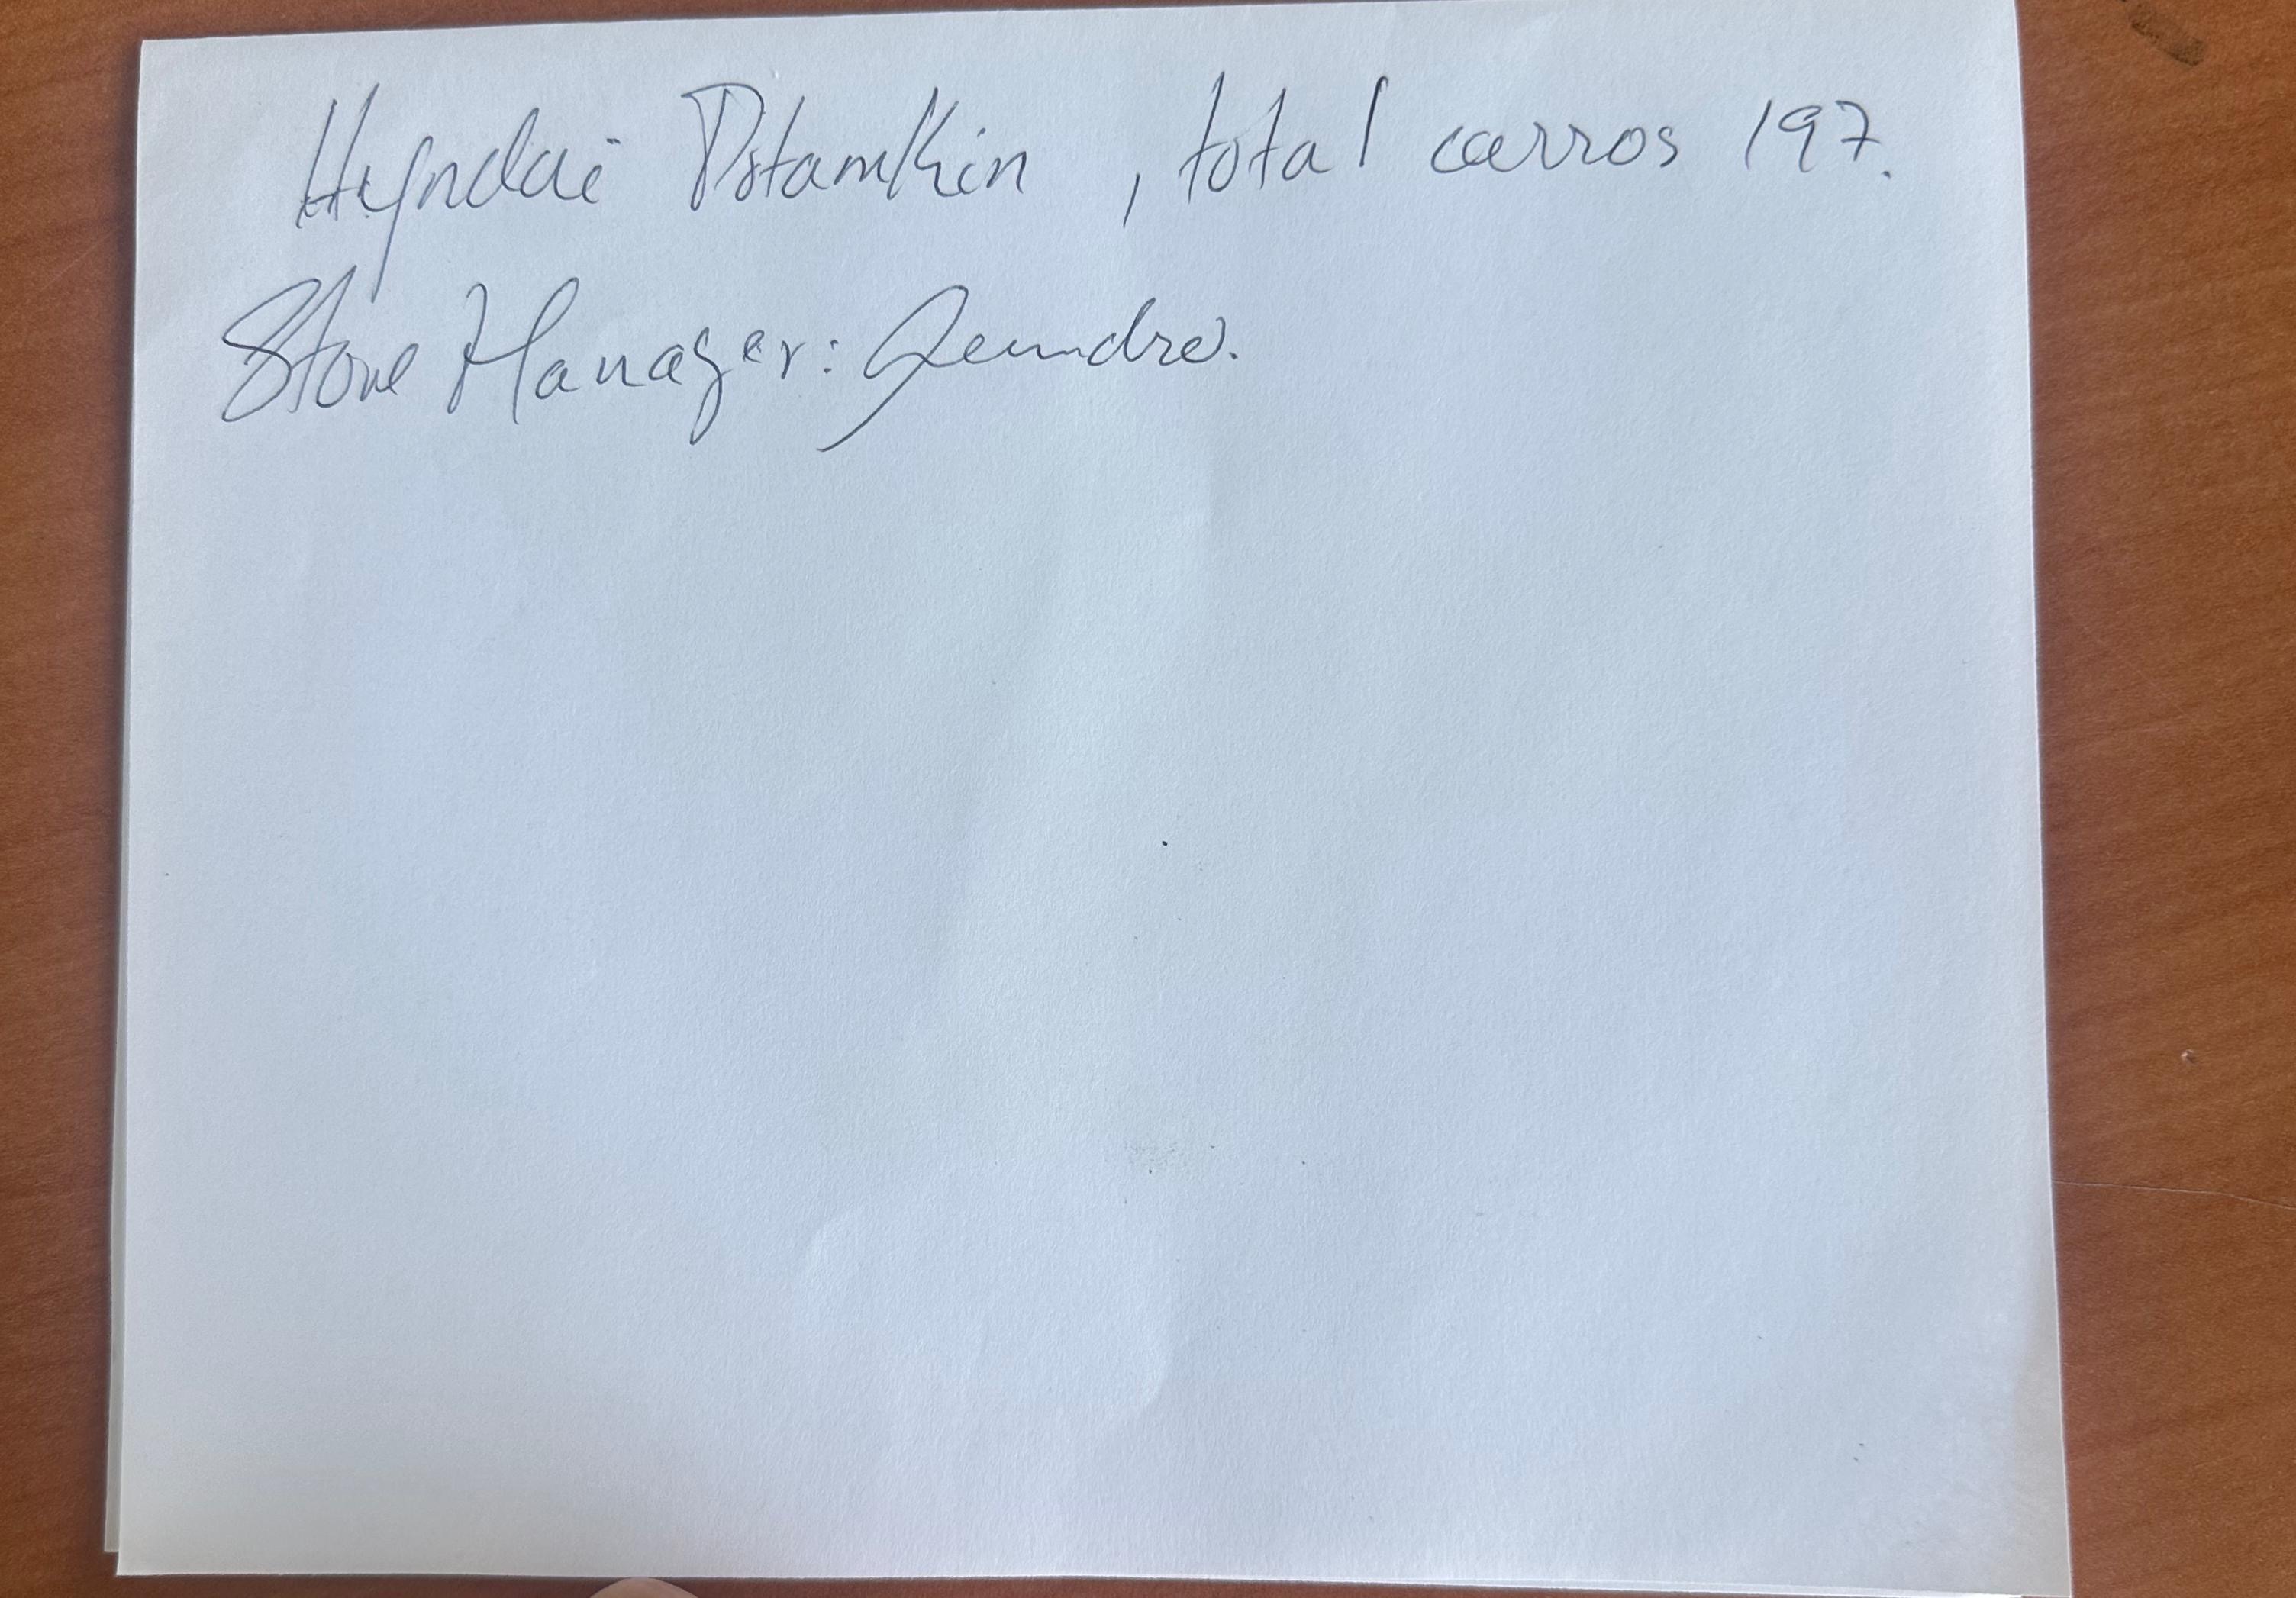 Hyndai Potamkin, total carros 197.
Store Manager: